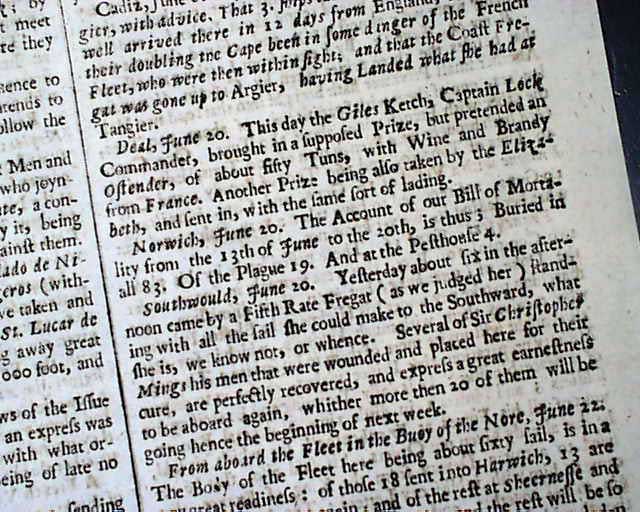 t; by
meet
re they
sence to
ntends to
ollow the
Men and
who joyn-
ate, a con-
y it, being
ainst them.
lado de Ni-
ceros (with-
ve taken and
St. Lucar de
g away great
000 foot, and
ws of the Issue
an express was
with what or-
eing of late no
sending
Cadiz, June
gier, with advice, That 3. ships
well arrived there in 12 days from England,
their doubling the Cape been in some danger of the French
Fleet, who were then within sight; and that the Coast Fre-
gat was gone up to Argier, having Landed what she had at
Tangier.
Deal, June 20. This day the Giles Ketch, Captain Lock
Commander, brought in a supposed Prize, but pretended an
Ostender, of about fifty Tuns, with Wine and Brandy
from France. Another Prize being also taken by the Eliza-
beth, and sent in, with the same sort of lading.
Norwich, June 20. The Account of our Bill of Morta-
lity from the 13th of June to the 20th, is thus; Buried in
all 83. Of the Plague 19. And at the Pesthouse 4.
Southwould, June 20. Yesterday about six in the after-
noon came by a Fifth Rate Fregat (as we judged her) stand-
ing with all the sail she could make to the Southward, what
she is, we know not, or whence. Several of Sir Christopher
Mings his men that were wounded and placed here for their
cure, are perfectly recovered, and express a great earnestness
to be aboard again, whither more then 20 of them will be
going hence the beginning of next week.
From aboard the Fleet in the Buoy of the Nore, June 22.
The Body of the Fleet here being about sixty sail, is in a
great readiness: of those 18 sent into Harwich, 13 are
again; and of the rest at Sheernesse and
and the rest will be so